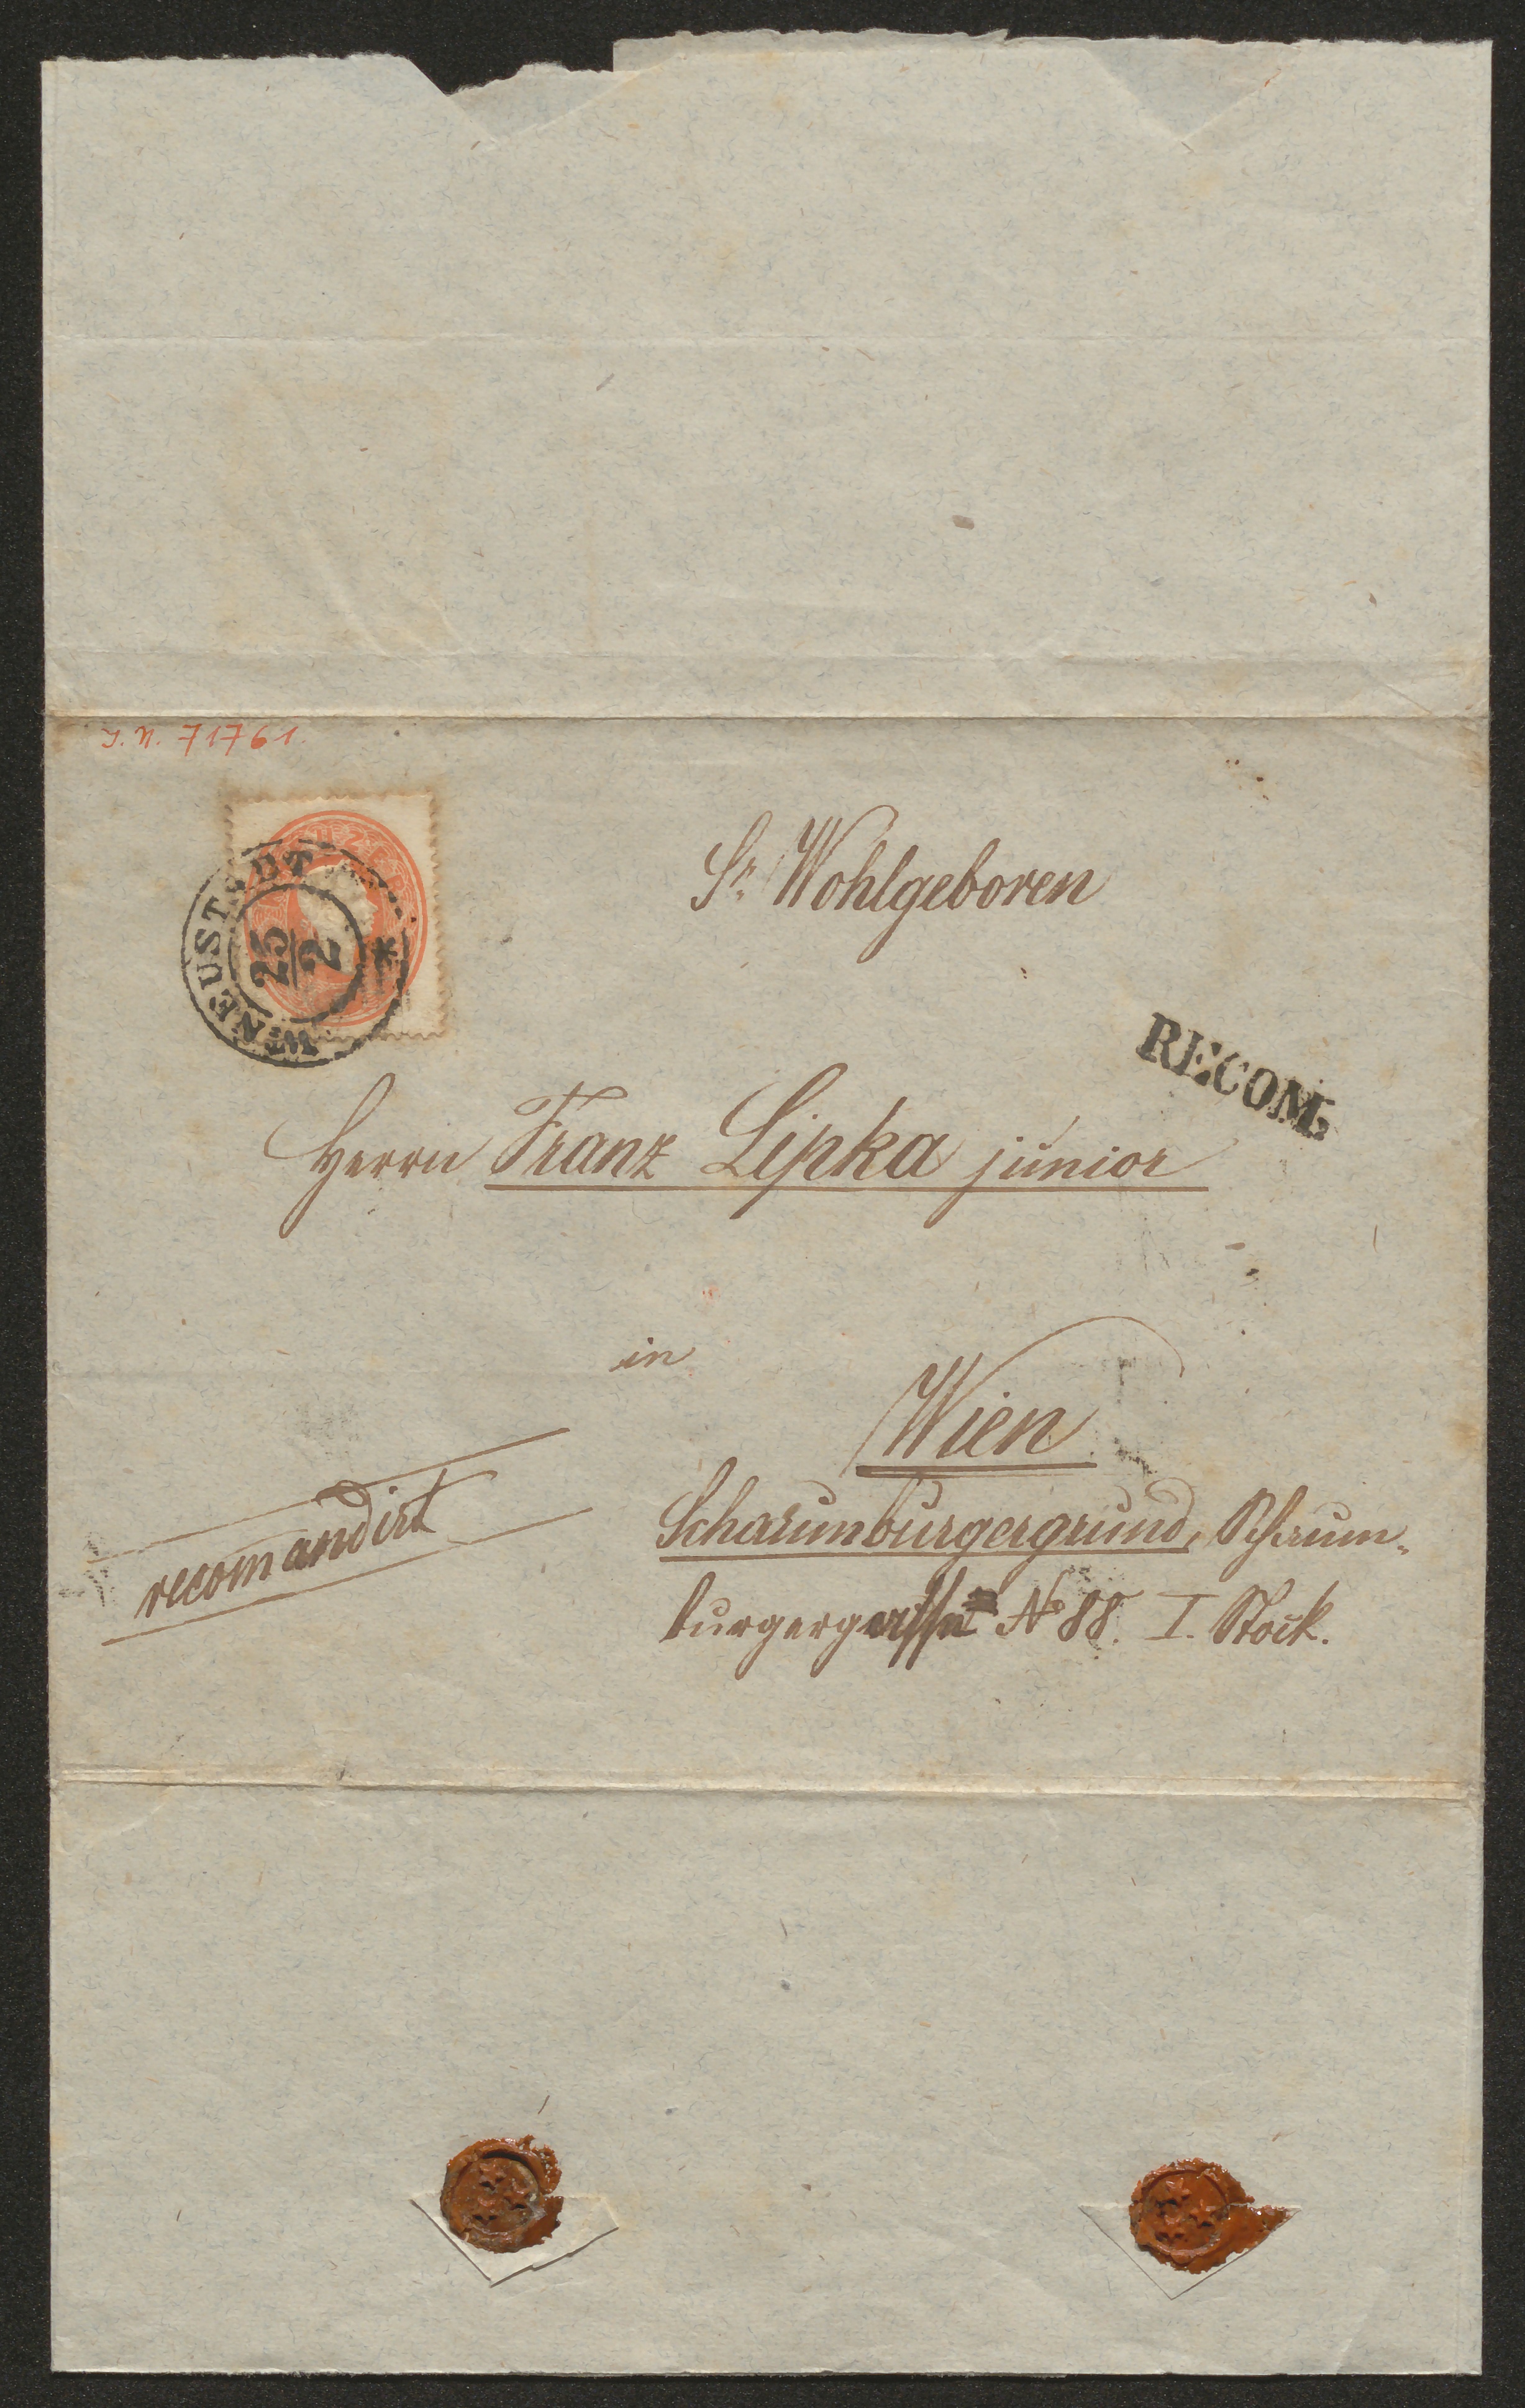 J. N. 71761.
W. NEUSTADT
25
2
Sr. Wohlgeboren
RECOM.
Herrn Franz Lipka junior
in
Wien
recomandirt
Schaumburgergrund, Schaum-
burgergasse No 88. I. Stock.